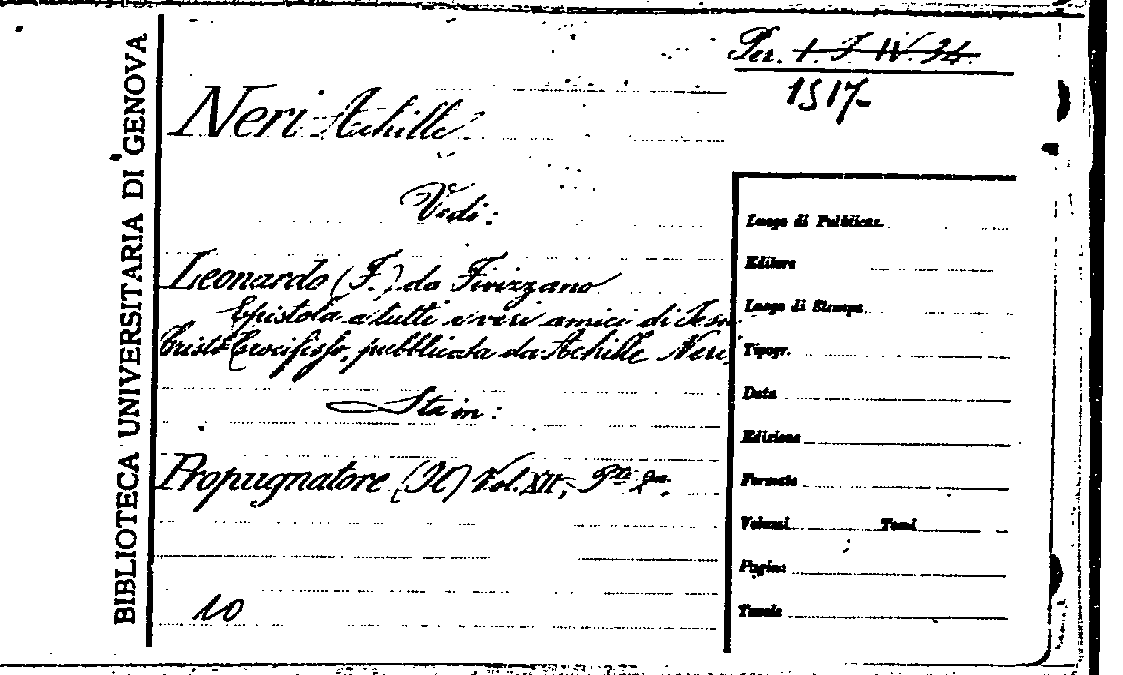 BIBLIOTECA UNIVERSITARIA DI GENOVA
Per. 1. F. IV. 34.
1517-
Neri Achille
Vedi:
Leonardo (F.) da Fivizzano
Epistola a tutti e veri amici di Jesu
Cristo Crocifisso, pubblicata da Achille Neri
Sta in:
Propugnatore (Il) Vol. XII, Pte 2a.
10
Luogo di Pubblicaz.
Editore
Luogo di Stampa
Tipogr.
Data
Edizione
Formato
Volumi Tomi
Pagine
Tavole